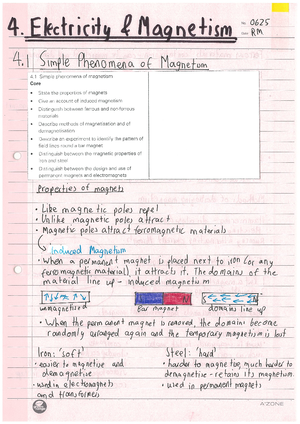 4. Electricity & Magnetism
No. 0625
Date RM
4.1 Simple Phenomena of Magnetism
4.1 Simple phenomena of magnetism
Core
• State the properties of magnets
• Give an account of induced magnetism
• Distinguish between ferrous and non-ferrous
materials
• Describe methods of magnetisation and of
demagnetisation
• Describe an experiment to identify the pattern of
field lines round a bar magnet
• Distinguish between the magnetic properties of
iron and steel
• Distinguish between the design and use of
permanent magnets and electromagnets
Properties of magnets
• Like magnetic poles repel
• Unlike magnetic poles attract
• Magnetic poles attract ferromagnetic materials
Induced Magnetism
• When a permanent magnet is placed next to iron (or any
ferromagnetic material), it attracts it. The domains of the
material line up - induced magnetism
unmagnetised
Bar magnet
domains line up
• When the permanent magnet is removed, the domains become
randomly arranged again and the temporary magnetism is lost
Iron: 'soft'
• easier to magnetise and
demagnetise
• used in electromagnets
and transformers
Steel: 'hard'
• harder to magnetise, much harder to
demagnetise - retains its magnetism.
• used in permanent magnets
A'ZONE